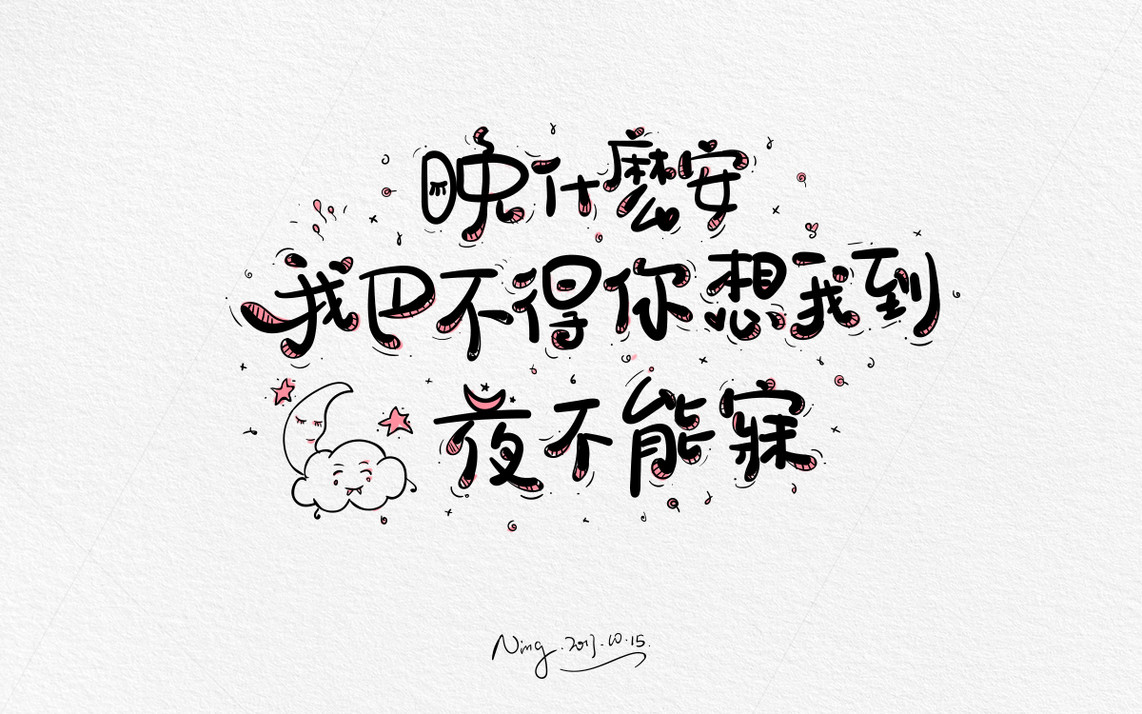 晚什麼安
我巴不得你想我到
夜不能寐
Ning.2017.10.15.